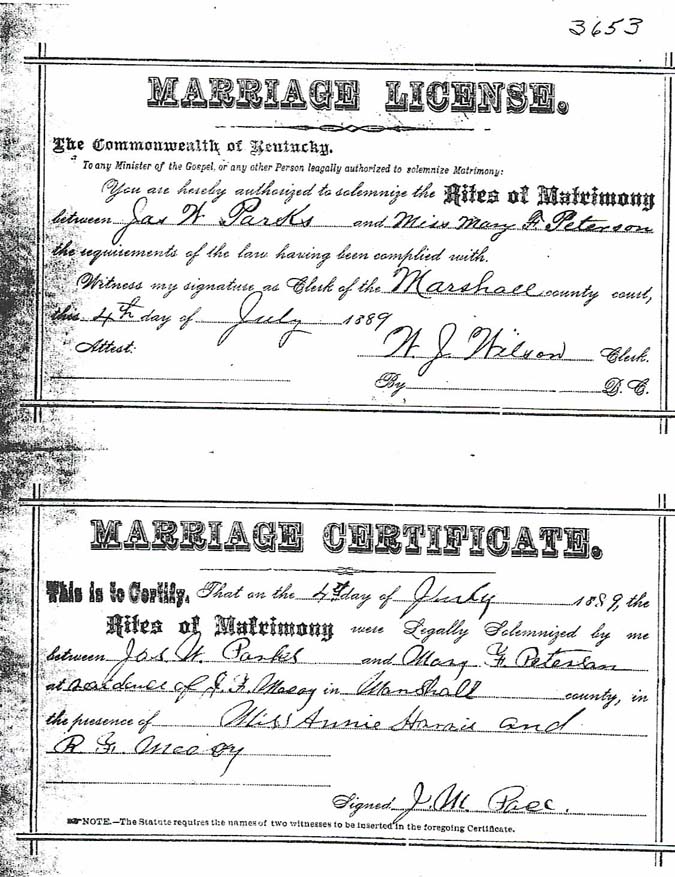 3653
MARRIAGE LICENSE.
The Commonwealth of Kentucky.
To any Minister of the Gospel, or any other Person leagally authorized to solemnize Matrimony:
You are hereby authorized to solemnize the Rites of Matrimony
between Jas W Parks and Miss Mary F. Peterson
the requirements of the law having been complied with.
Witness my signature as Clerk of the Marshall county court,
this 4th day of July 1889
Attest: W. J. Wilson Clerk.
By D. C.
MARRIAGE CERTIFICATE.
This is to Certify, That on the 4th day of July 1889, the
Rites of Matrimony were Legally Solemnized by me
between Jas. W. Parks and Mary F. Peterson
at residence of F. McCoy in Marshall county, in
the presence of Miss Annie and
R. F. McCoy
Signed J. M.
NOTE.—The Statute requires the names of two witnesses to be inserted in the foregoing Certificate.